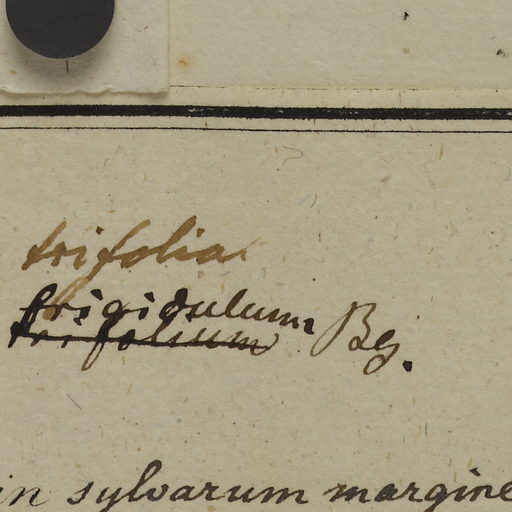 trifolia
frigidulum Bg.
trifolium
in sylvarum margine